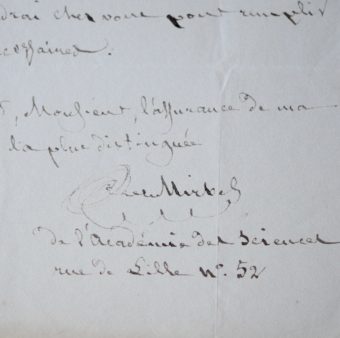 drai chez vous pour remplir
cessaires.
, Monsieur, l'assurance de ma
la plus distinguée
Mirbel
de l'Académie des Sciences
rue de Lille n.° 52